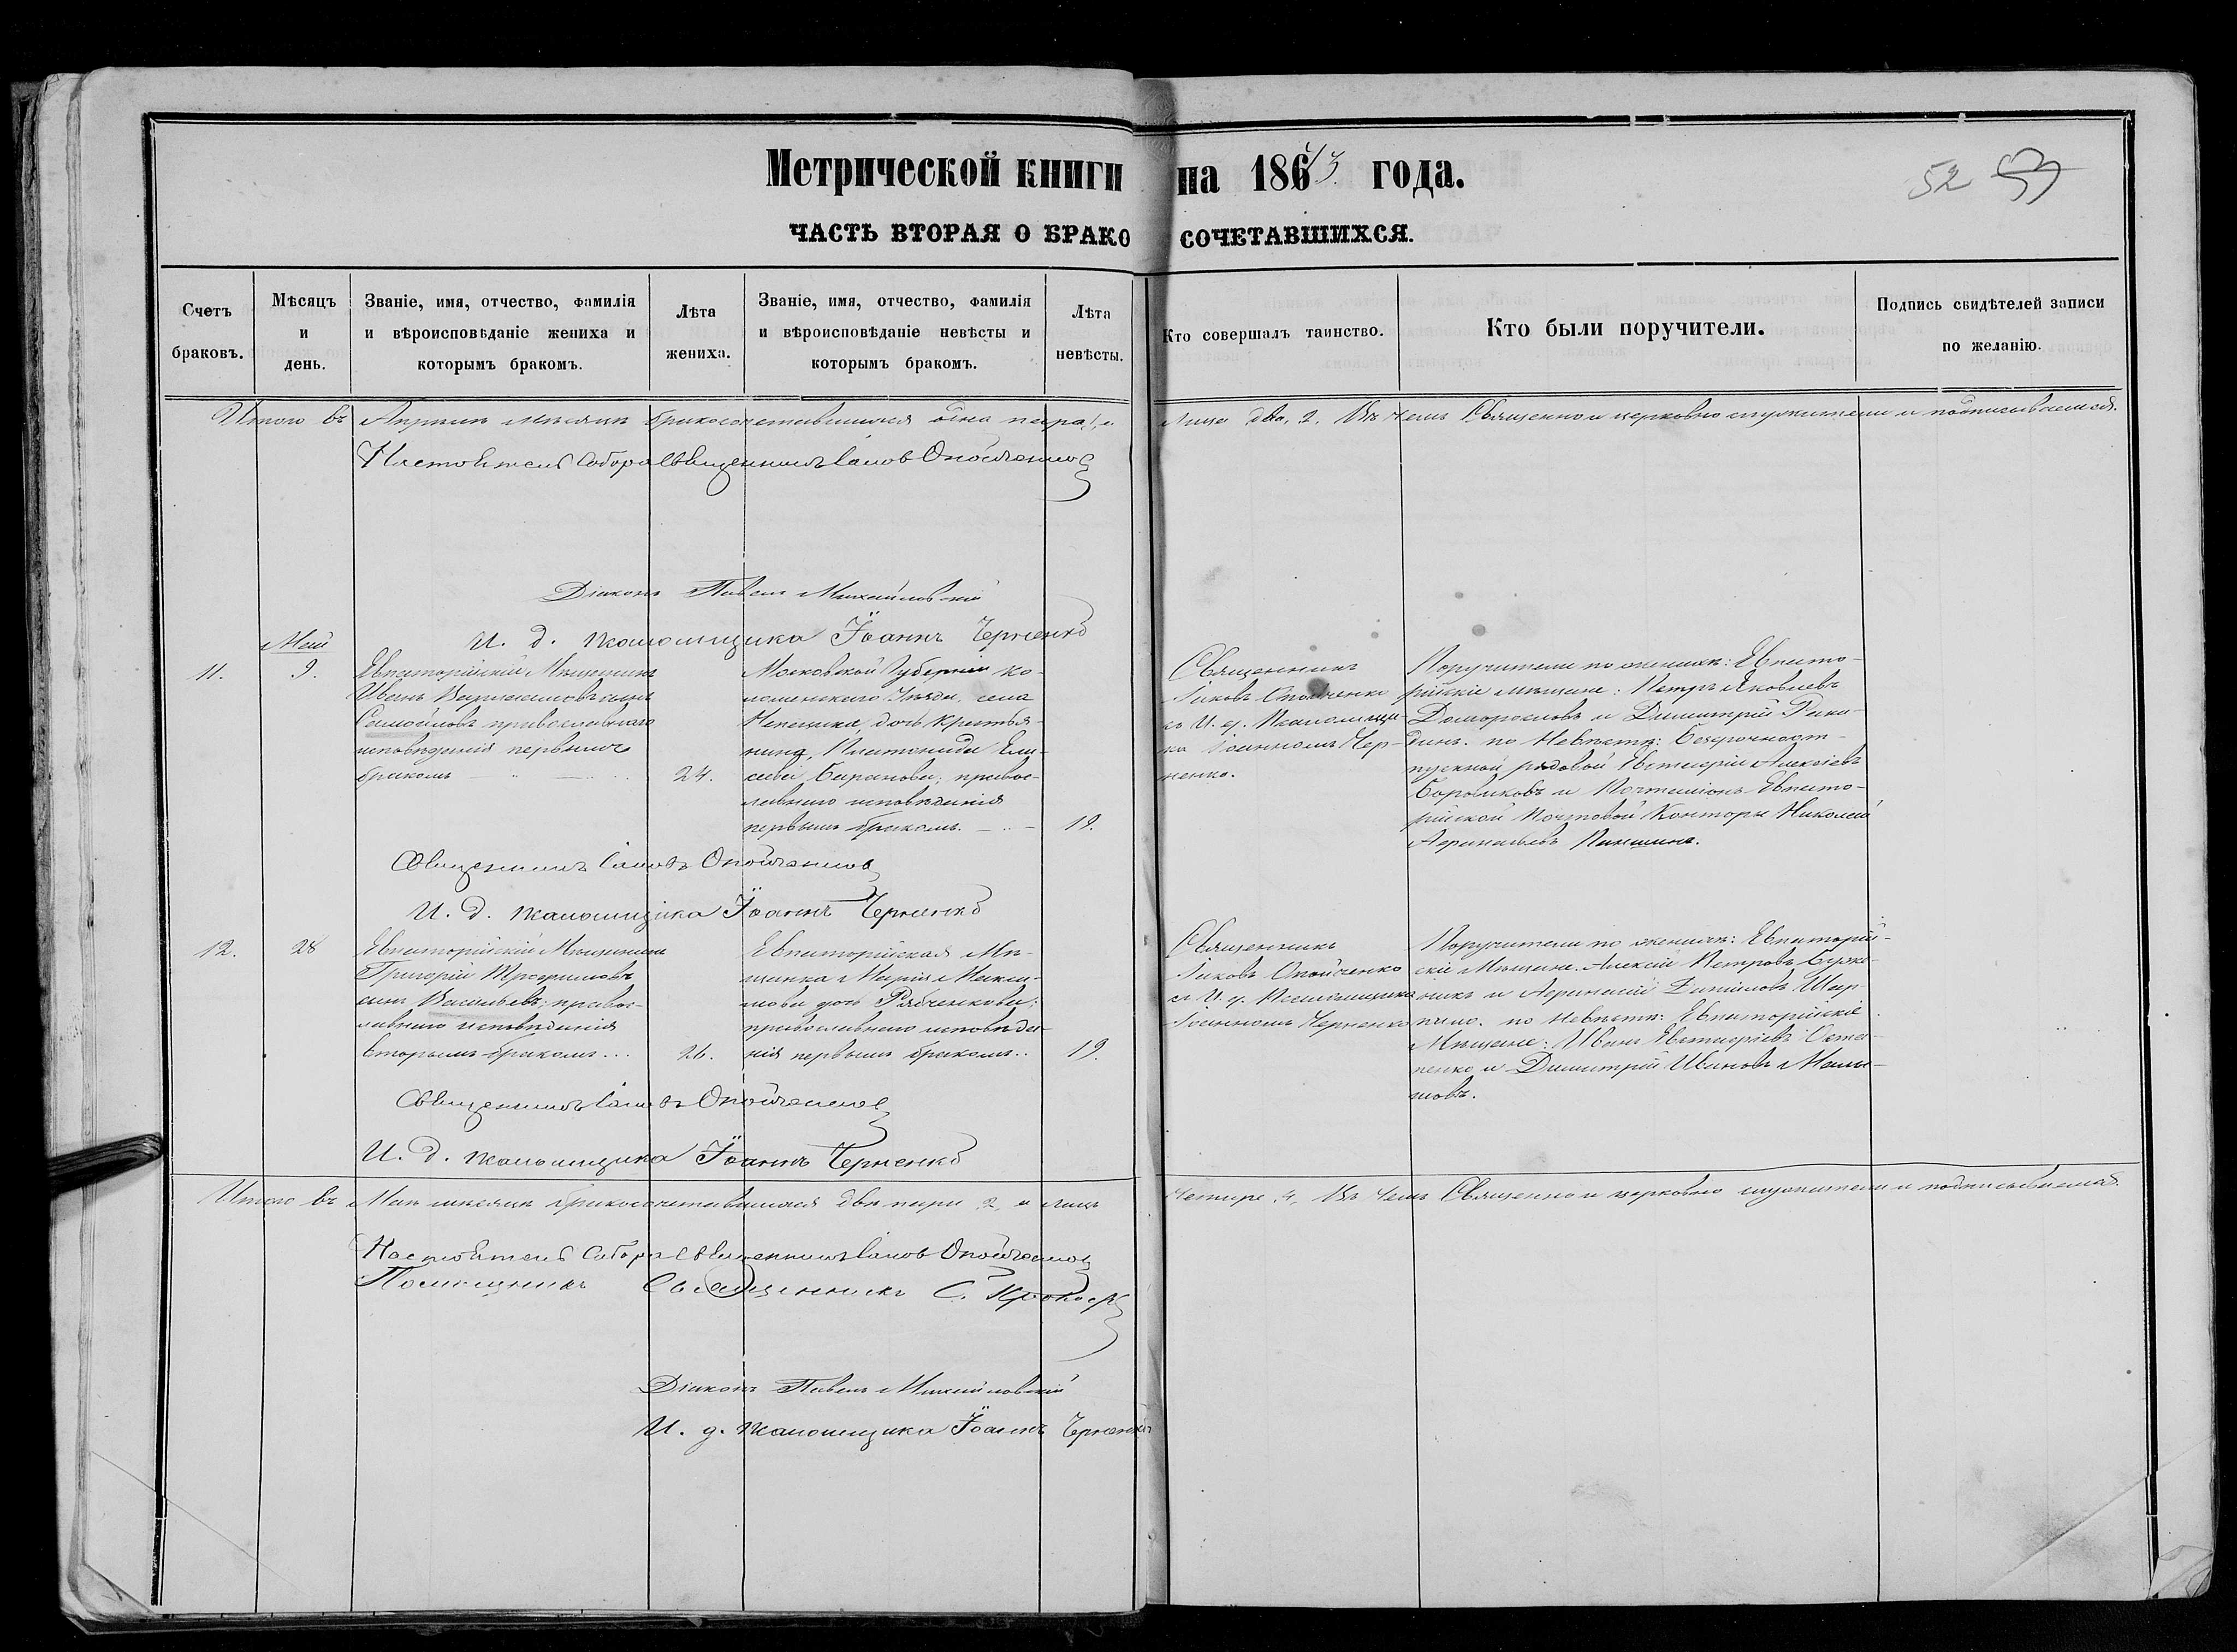 Метрической книги на 1863 года.
52
ЧАСТЬ ВТОРАЯ О БРАКОСОЧЕТАВШИХСЯ.
Счетъ браковъ.
Мѣсяцъ и день.
Званіе, имя, отчество, фамилія и вѣроисповѣданіе жениха и которымъ бракомъ.
Лѣта жениха.
Званіе, имя, отчество, фамилія и вѣроисповѣданіе невѣсты и которымъ бракомъ.
Лѣта невѣсты.
Кто совершалъ таинство.
Кто были поручители.
Подпись свидѣтелей записи по желанію.
Итого въ Апрѣлѣ мѣсяцѣ бракосочетавшихся одна пара, 1, а лица два, 2. Въ чемъ Священно и церковно служители и подписываемся.
Настоятель Собора Священникъ Іаковъ Опойченко
Діаконъ Павелъ Михайловскій
И. д. псаломщика Іоаннъ Черненко
Май
11.
9.
Евпаторійскій Мѣщанинъ
Иванъ сынъ
Самойловъ православнаго
исповѣданія первымъ
бракомъ
24.
Московской Губерніи Ко-
ломенскаго Уѣзда, села
дочь крестья-
нина, Ели-
Баранова, правос-
лавнаго исповѣданія
первымъ бракомъ.
19.
Священникъ
Іаковъ Опойченко
съ И. д. Псаломщи-
ка Іоанномъ Чер-
ненко.
Поручители по женихѣ: Евпато-
рійскіе мѣщане: Петръ Яковлевъ
Доморословъ и Димитрій
по Невѣстѣ: Безсрочноот-
пускной рядовой Евстафій Алексѣевъ
Боровиковъ и Почталіонъ Евпато-
рійской Почтовой Конторы Николай
Паншинъ.
Священникъ Іаковъ Опойченко
И. д. псаломщика Іоаннъ Черненко
12.
28
Евпаторійскій Мѣщанинъ
Григорій Трофимовъ
сынъ Васильевъ; правос-
лавнаго исповѣданія
вторымъ бракомъ...
26.
Евпаторійская Мѣ-
щанка Марія Макси-
мова дочь Рябченкова;
православнаго исповѣда-
нія первымъ бракомъ..
19.
Священникъ
Іаковъ Опойченко
съ И. д. Псаломщика
Іоанномъ Черненко
Поручители по женихѣ: Евпаторій-
скіе Мѣщане: Алексѣй Петровъ
и Аѳанасій Даніиловъ
по Невѣстѣ: Евпаторійскіе
Мѣщане: Иванъ Евстафіевъ
и Димитрій Ивановъ
Священникъ Іаковъ Опойченко
И. д. псаломщика Іоаннъ Черненко
Итого въ Маѣ мѣсяцѣ бракосочетавшихся двѣ пары, 2, а лицъ четыре, 4, Въ чемъ Священно и церковно служители и подписываемся.
Настоятель Собора Священникъ Іаковъ Опойченко
Помощникъ Священникъ С.
Діаконъ Павелъ Михайловскій
И. д. псаломщика Іоаннъ Черненко